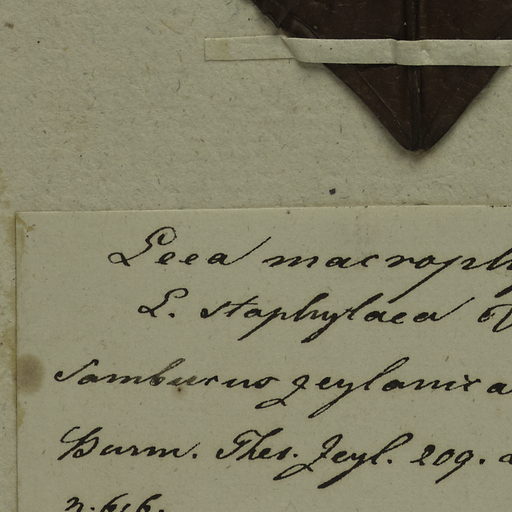 Leea macrophy
L. staphylaea
Sambucus zeylanica
Burm. Thes. Zeyl. 209.
n. 616.